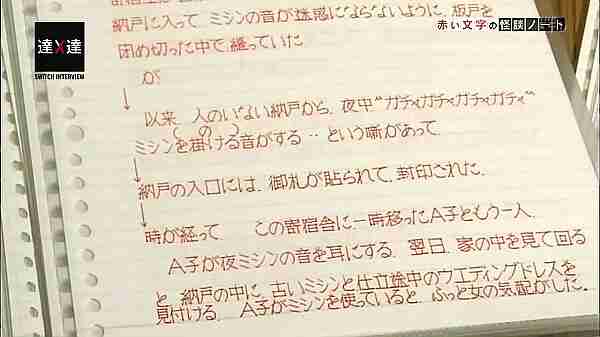 達×達
SWITCH INTERVIEW
赤い文字の怪談ノート
納戸に入って ミシンの音が迷惑にならないように、板戸を
閉め切った中で、縫っていた
が
↓
以来 人のいない納戸から、夜中“ガチャガチャガチャガチャ”
ミシンを掛ける音がする‥という噂があって
↓
納戸の入口には、御札が貼られて、封印された。
↓
時が経って この寄宿舎に一時移ったA子ともう一人、
A子が夜ミシンの音を耳にする、翌日、家の中を見て回る
と、納戸の中に、古いミシンと仕立途中のウエディングドレスを
見付ける、A子がミシンを使っていると、ふっと女の気配がした。